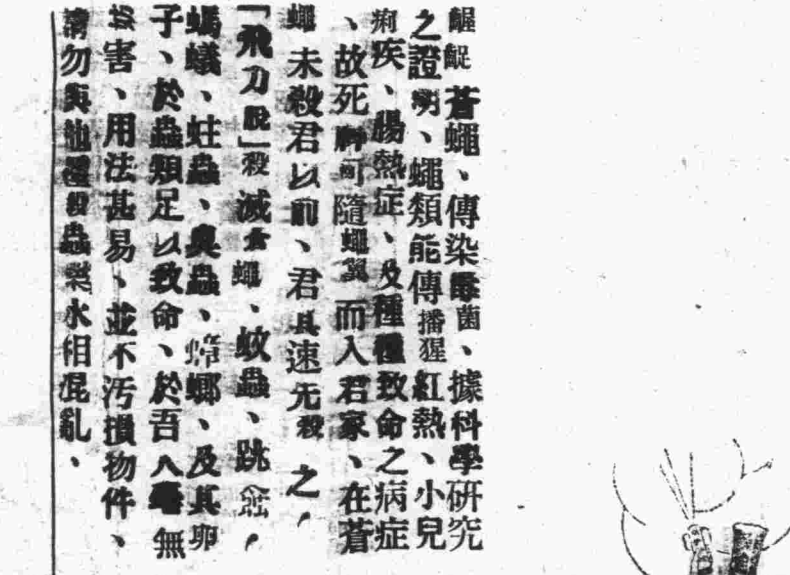 齷齪蒼蠅、傳染毒菌、據科學研究
之證明、蠅類能傳播猩紅熱、小兒
痢疾、腸熱症、及種種致命之病症
、故死神可隨蠅翼而入君家、在蒼
蠅未殺君以前、君其速先殺之，
「飛刀脫」殺滅蒼蠅、蚊蟲、跳蚤，
螞蟻、蛀蟲、臭蟲、蟑螂、及其卵
子、於蟲類足以致命、於吾人毫無
害、用法甚易、並不汚損物件、
請勿與他種殺蟲藥水相混亂、